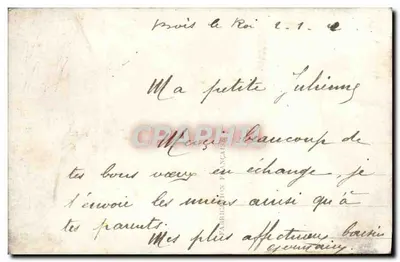 Bois le Roi 2-1-
Ma petite Julienne
Merçi beaucoup de
tes bons vœux en échange, je
t'envoie les miens ainsi qu'à
tes parents.
Mes plus affectueux baisers
CPARAMA
FABRICATION FRANÇAISE